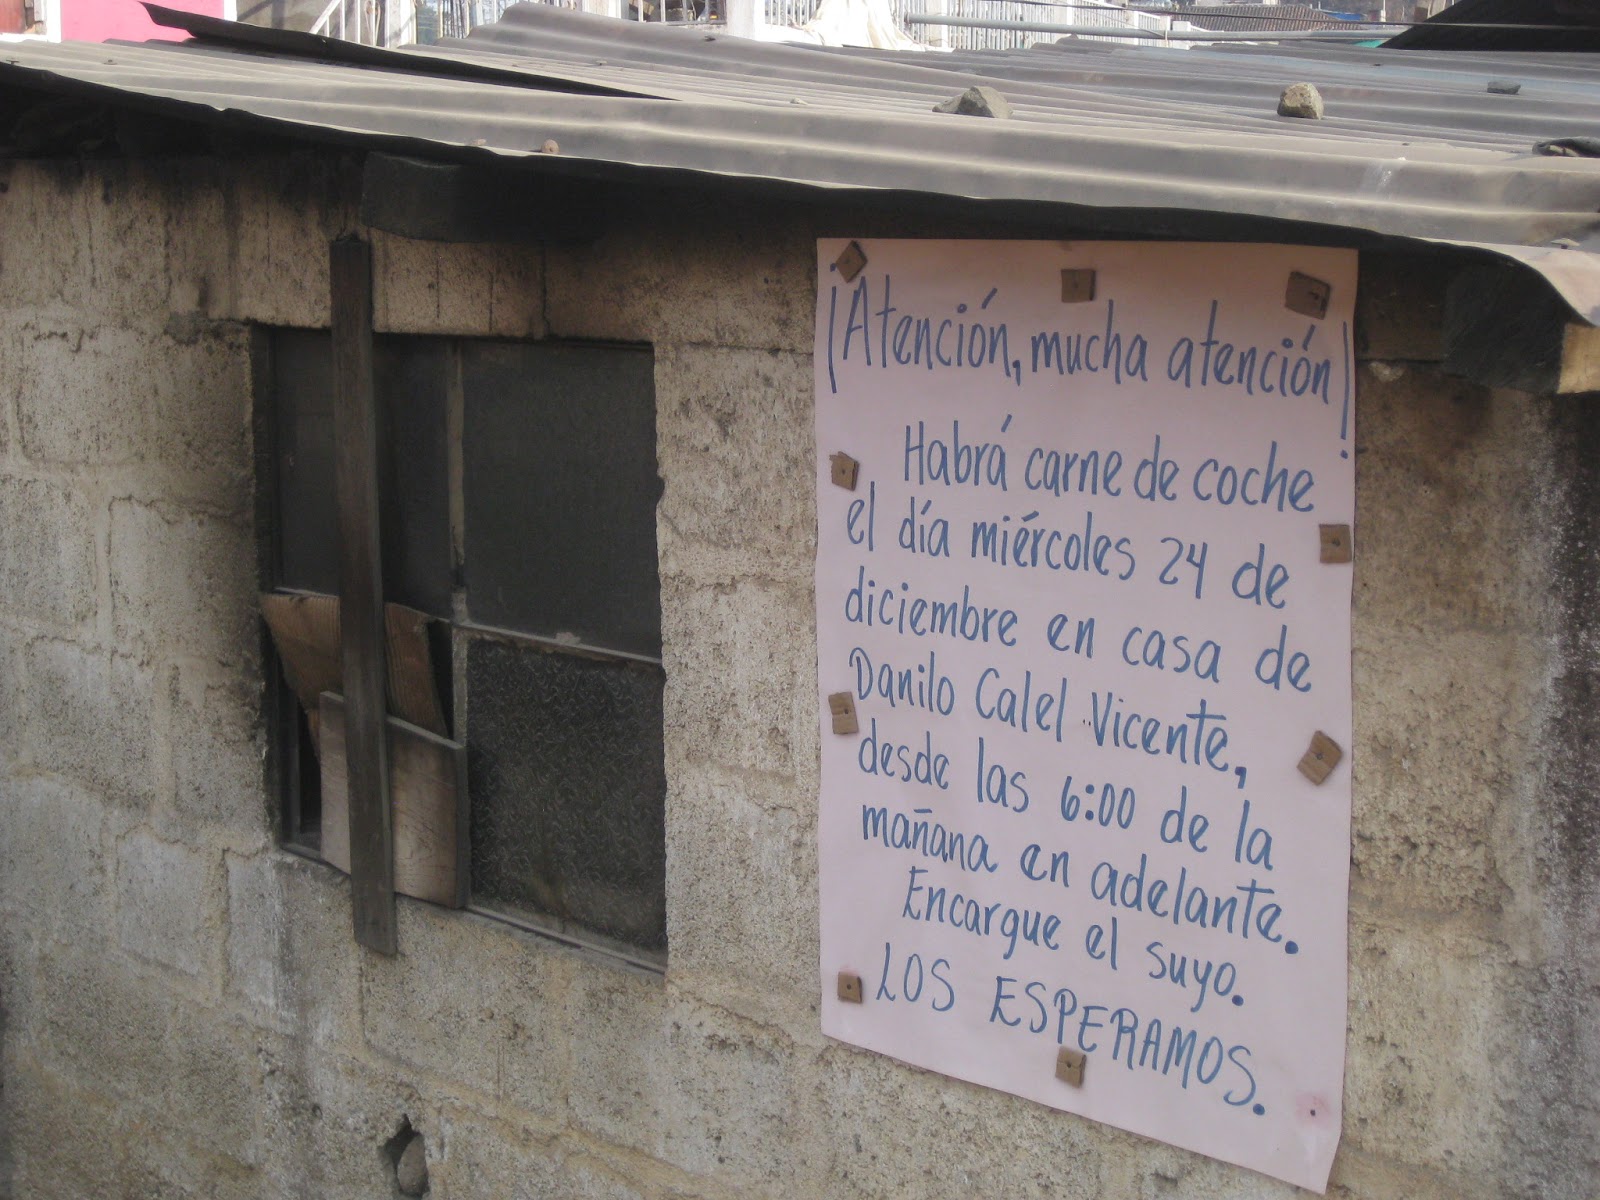 ¡Atención, mucha atención!
Habrá carne de coche
el día miércoles 24 de
diciembre en casa de
Danilo Calel Vicente,
desde las 6:00 de la
mañana en adelante.
Encargue el suyo.
LOS ESPERAMOS.